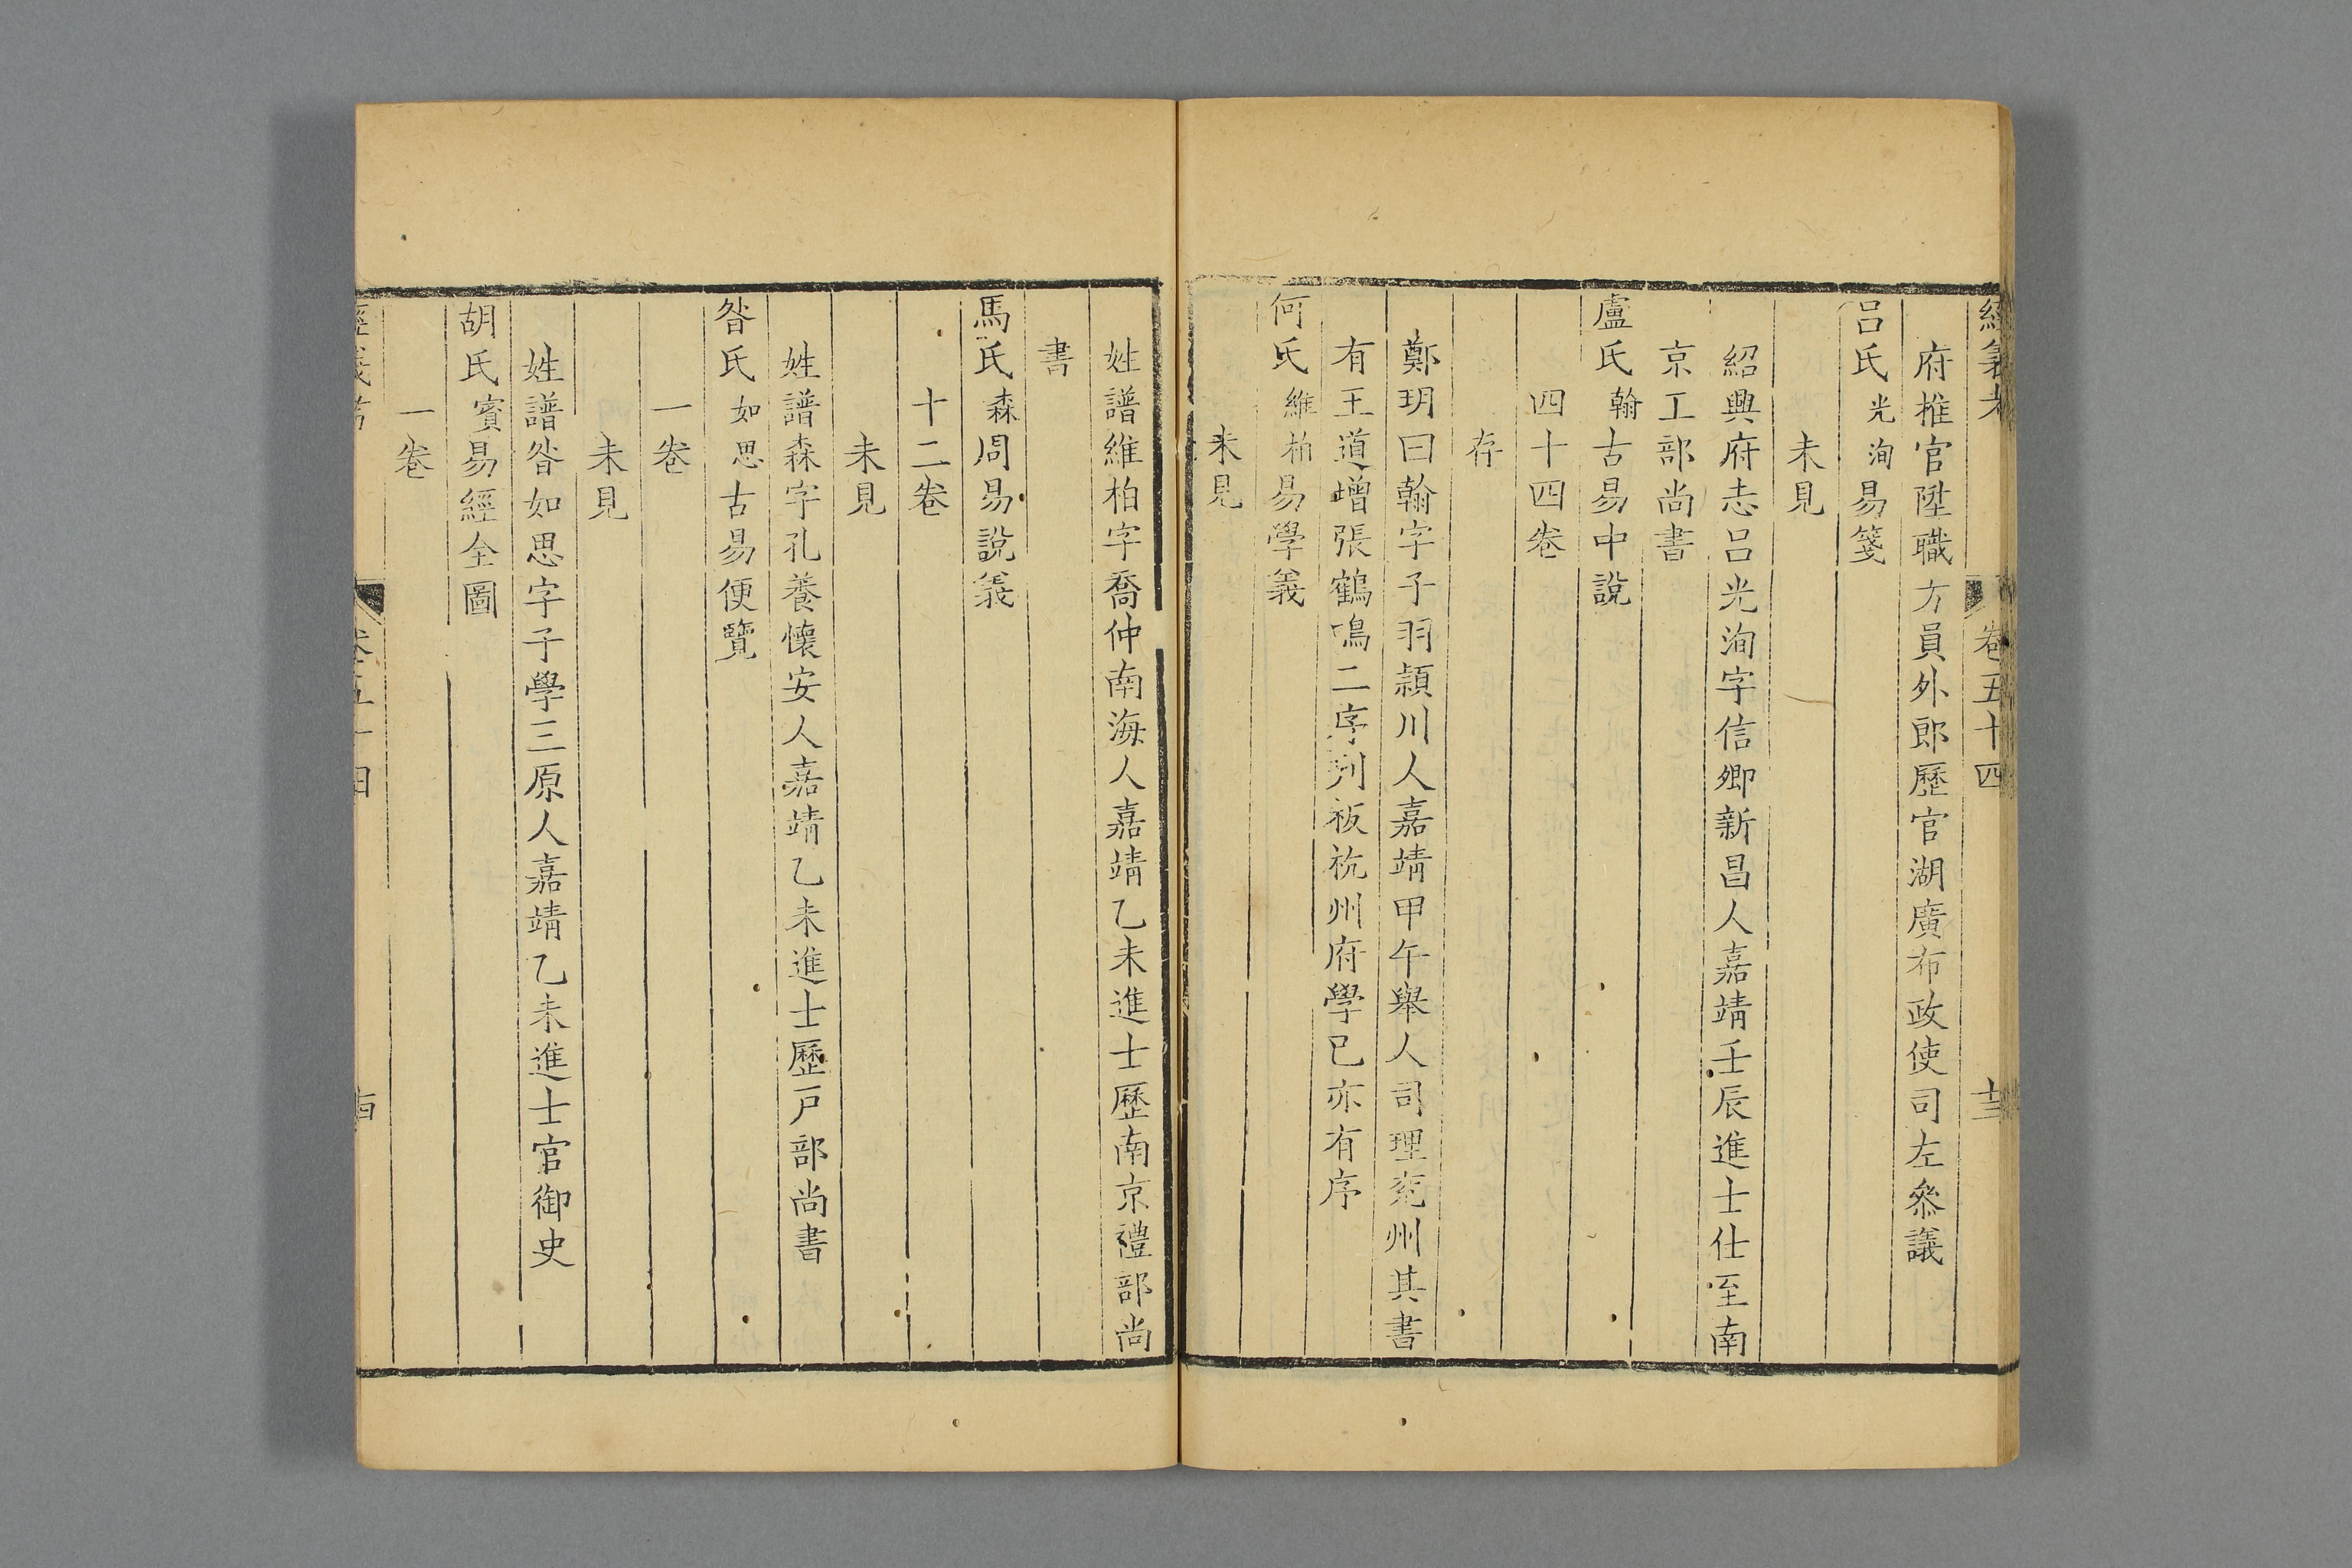 經義考 卷五十四 十三
府推官陞職方員外郎歷官湖廣布政使司左叅議
呂氏光洵易箋
未見
紹興府志呂光洵字信卿新昌人嘉靖壬辰進士仕至南
京工部尚書
盧氏翰古易中說
四十四卷
存
鄭玥曰翰字子羽潁川人嘉靖甲午舉人司理兖州其書
有王道增張鶴鳴二序刋板杭州府學巳亦有序
何氏維柏易學義
未見
姓譜維柏字喬仲南海人嘉靖乙未進士歷南京禮部尚
書
馬氏森周易說義
十二卷
未見
姓譜森字孔養懷安人嘉靖乙未進士歷戸部尚書
昝氏如思古易便覽
一卷
未見
姓譜昝如思字子學三原人嘉靖乙未進士官御史
胡氏賓易經全圖
一卷
經義考 卷五十四